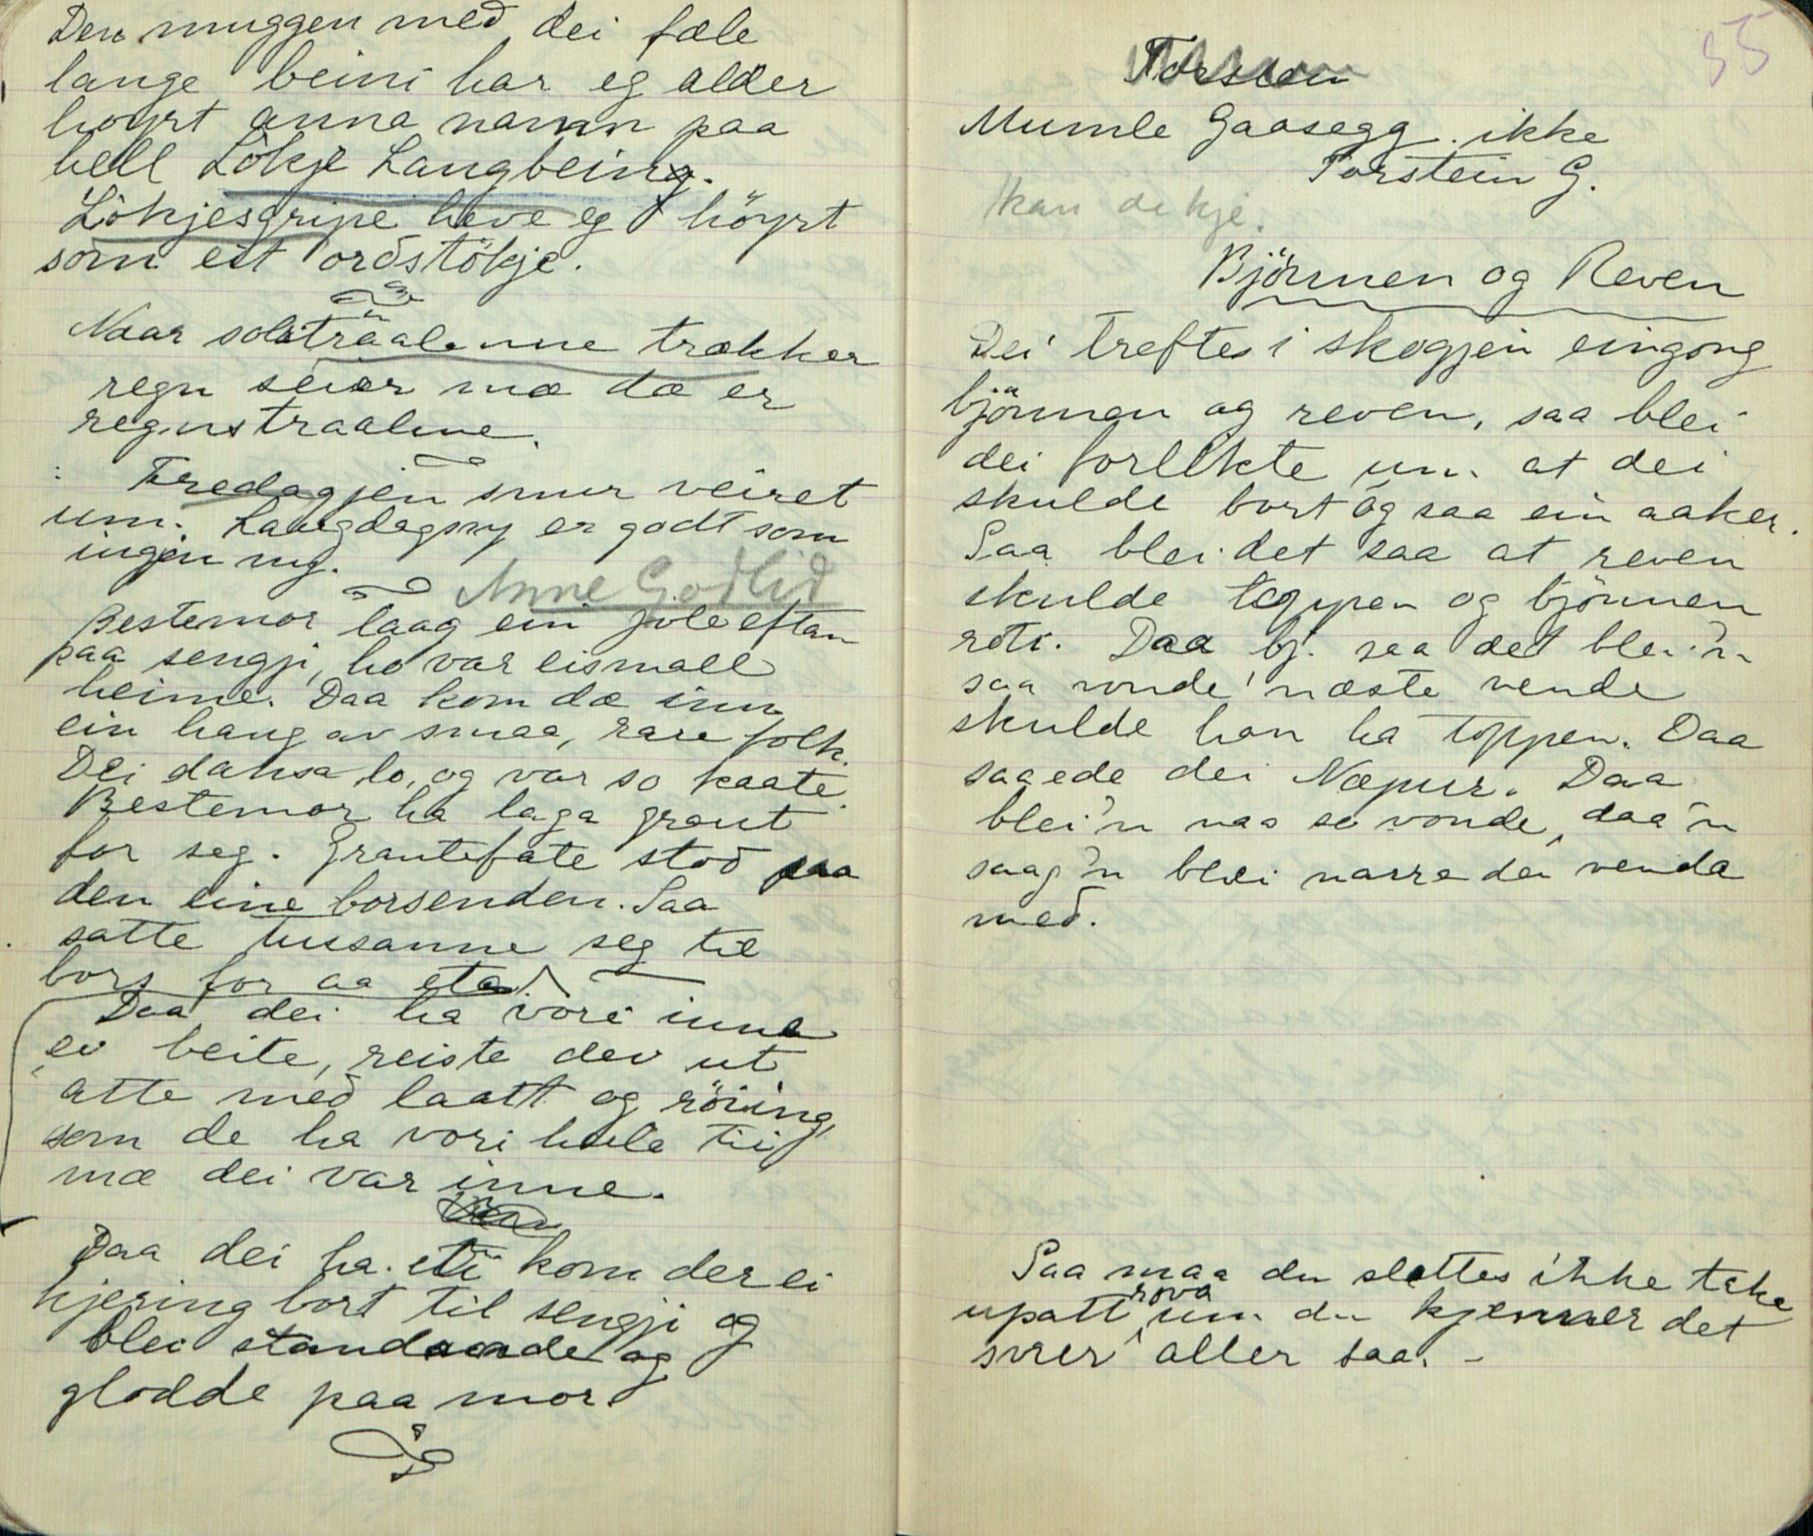 Den muggen med dei fæle
lange beini har eg alder
høyrt anna namn paa
hell Lökje Langbein.
Lökjesgripe heve eg höyrt
som eit ordstökje.
Naar solstraalenne trækker
regn seier mæ dæ er
regnstraalene.
Fredagjen snur veiret
um. Laugdagsny er godt som
ingjen ny.
Anne Godlid
Bestemor laag ein joleeftan
paa sengji, ho var eismall
heime. Daa kom dæ inn
ein haug av smaa, rare folk.
Dei dansa lo, og var so kaate.
Bestemor ha laga graut
for seg. Grautefate stod paa
den eine borsenden. Saa
satte tusanne seg til
bors for aa eta.
Daa dei ha vori inne
ei beite, reiste dei ut
atte med laatt og röiing,
som de ha vori hele tii
mæ dei var inne.
Daa dei ha eti kom der ei
kjering bort til sengji og
blei standande og
glodde paa mor.
55
Torstein
Mumle Gaasegg. ikke
Torstein G.
kan de kje.
Björnnen og Reven
Dei treftes i skogjen eingong
björnnen og reven, saa blei
dei forlikte um at dei
skulde bort og saa ein aaker.
Saa blei det saa at reven
skulde toppen og björnnen
roti. Daa bj. saa det blei 'n
saa vonde, næste vende
skulde han ha toppen. Daa
saaede dei Næpur. Daa
blei'n naa so vonde, daa'n
saag'n blei narra dei venda
med.
Saa maa du slettes ikke take
upatt rova um du kjenner det
svier aller saa. -